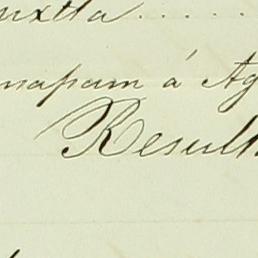 uxtla . . . . . .
mapam á Ag
Result